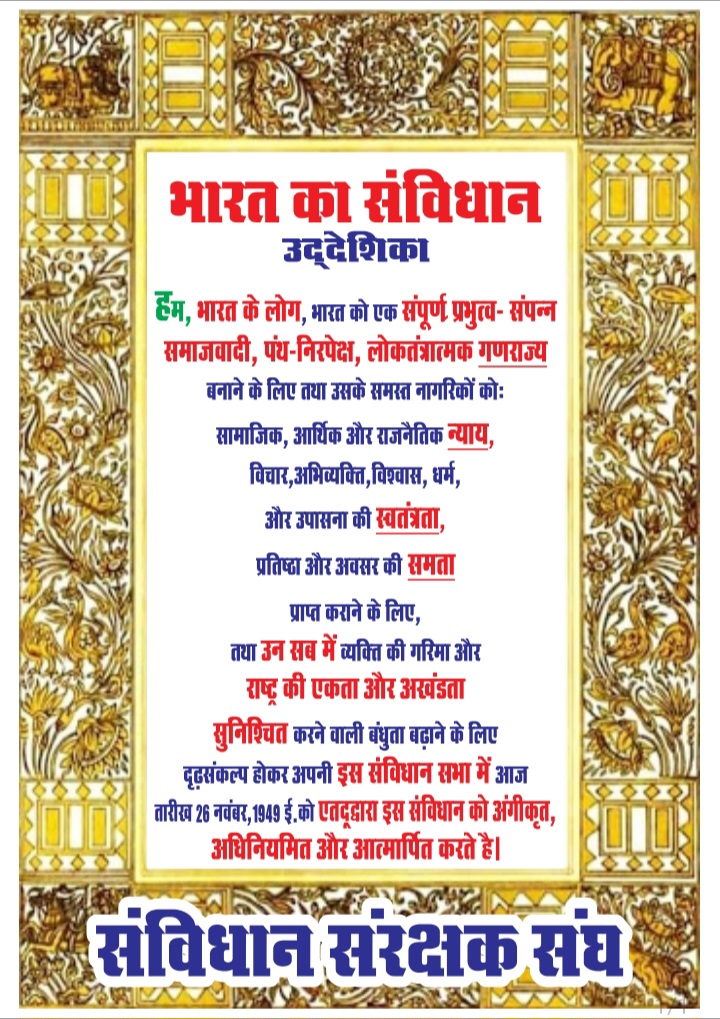 भारत का संविधान
उद्देशिका
हम, भारत के लोग, भारत को एक संपूर्ण प्रभुत्व- संपन्न
समाजवादी, पंथ-निरपेक्ष, लोकतंत्रात्मक गणराज्य
बनाने के लिए तथा उसके समस्त नागरिकों को:
सामाजिक, आर्थिक और राजनैतिक न्याय,
विचार,अभिव्यक्ति,विश्वास, धर्म,
और उपासना की स्वतंत्रता,
प्रतिष्ठा और अवसर की समता
प्राप्त कराने के लिए,
तथा उन सब में व्यक्ति की गरिमा और
राष्ट्र की एकता और अखंडता
सुनिश्चित करने वाली बंधुता बढ़ाने के लिए
दृढ़संकल्प होकर अपनी इस संविधान सभा में आज
तारीख 26 नवंबर,1949 ई.को एतद्द्वारा इस संविधान को अंगीकृत,
अधिनियमित और आत्मार्पित करते है।
संविधान संरक्षक संघ
1/1